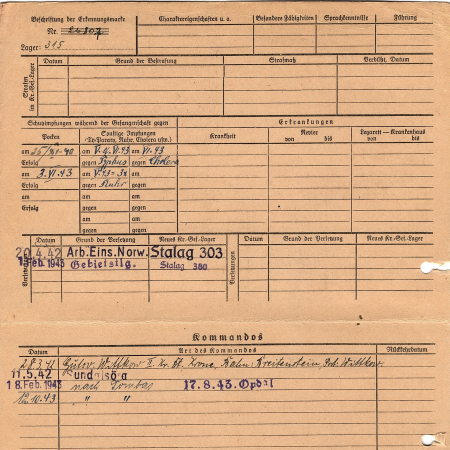 Beschriftung der Erkennungsmarke Charaktereigenschaften u. a. Besondere Fähigkeiten Sprachkenntnisse Führung
Nr. 24307
Lager: 315
Strafen im Kr.-Gef.-Lager Datum Grund der Bestrafung Strafmaß Verbüßt, Datum
Schutzimpfungen während der Gefangenschaft gegen Erkrankungen
Pocken Sonstige Impfungen (Ty-Paraty, Ruhr, Cholera usw.) Krankheit Revier von bis Lazarett – Krankenhaus von bis
am am V.43 am VI.43
Erfolg gegen Typhus gegen Cholera
am 3.VI.43 am V.43
Erfolg gegen Ruhr gegen
am am am
Erfolg gegen gegen
am am
gegen gegen
Versetzungen Datum Grund der Versetzung Neues Kr.-Gef.-Lager Versetzungen Datum Grund der Versetzung Neues Kr.-Gef.-Lager
20.4.42 Arb.Eins.Norw. Stalag 303
1. Feb. 1943 Gebietslg. Stalag 380
Kommandos
Datum Art des Kommandos Rückkehrdatum
28.3.41 Wittkow Kr. Dt. Krone, Bahn: Breitenstein Wittkow
11.5.42
18. Feb. 1943 nach Dombas 17.8.43. Opdal
10.43 " "